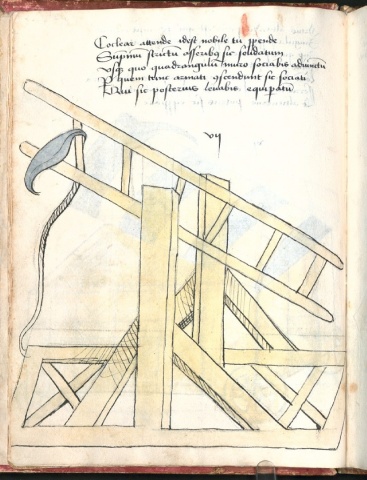 Coclear attende idest nobile tu pende
Sumum strictu asseribus sic solidatum
usq quo quadrangulu muro sociabis adiunctu
P quem tunc armati conscendunt sic sociati
Qui sic posterius levabis equipatu
vij